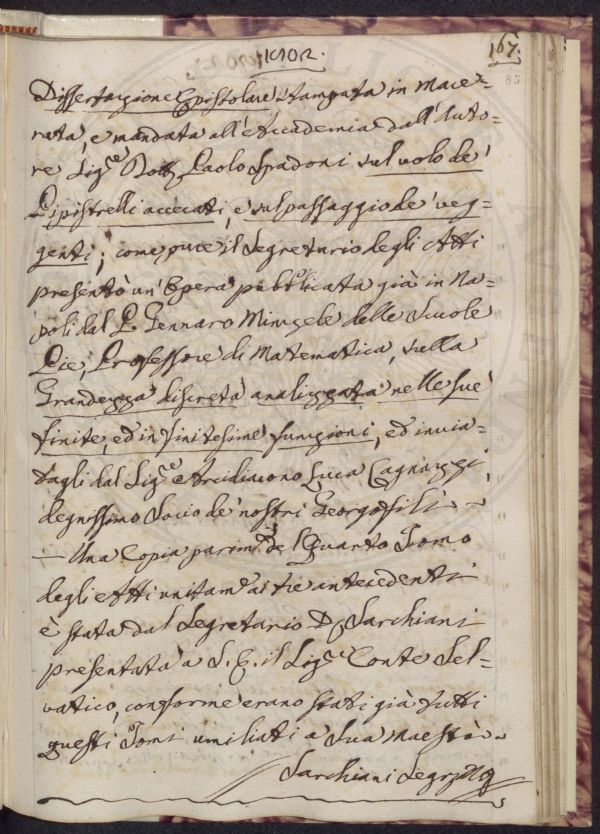 1802.
167.
85
Dissertazione Epistolare stampata in Mace=
rata, e mandata all'Accademia dall'Auto-
re Sig.e Dott. Paolo Spadoni sul volo de'
Pipistrelli acciecati, e sul passaggio de' veg=
genti; come pure il Segretario degli Atti
presentò un'Opera pubblicata già in Na-
poli dal P. Gennaro Minzele delle Scuole
Pie, Professore di Matematica, sulla
Grandezza discreta analizzata nelle sue
finite, ed infinitesime funzioni, ed invia=
tagli dal Sig.e Arcidiacono Luca Cagnazzi,
degnissimo Socio de' nostri Georgofili -
— Una Copia parim.e del Quarto Tomo
degli Atti unitam.e ai tre antecedenti
è stata dal Segretario D. Sarchiani
presentata a S. E. il Sig.e Conte Sal-
vatico, conforme erano stati già tutti
questi Tomi umiliati a Sua Maestà -
Sarchiani Segr.